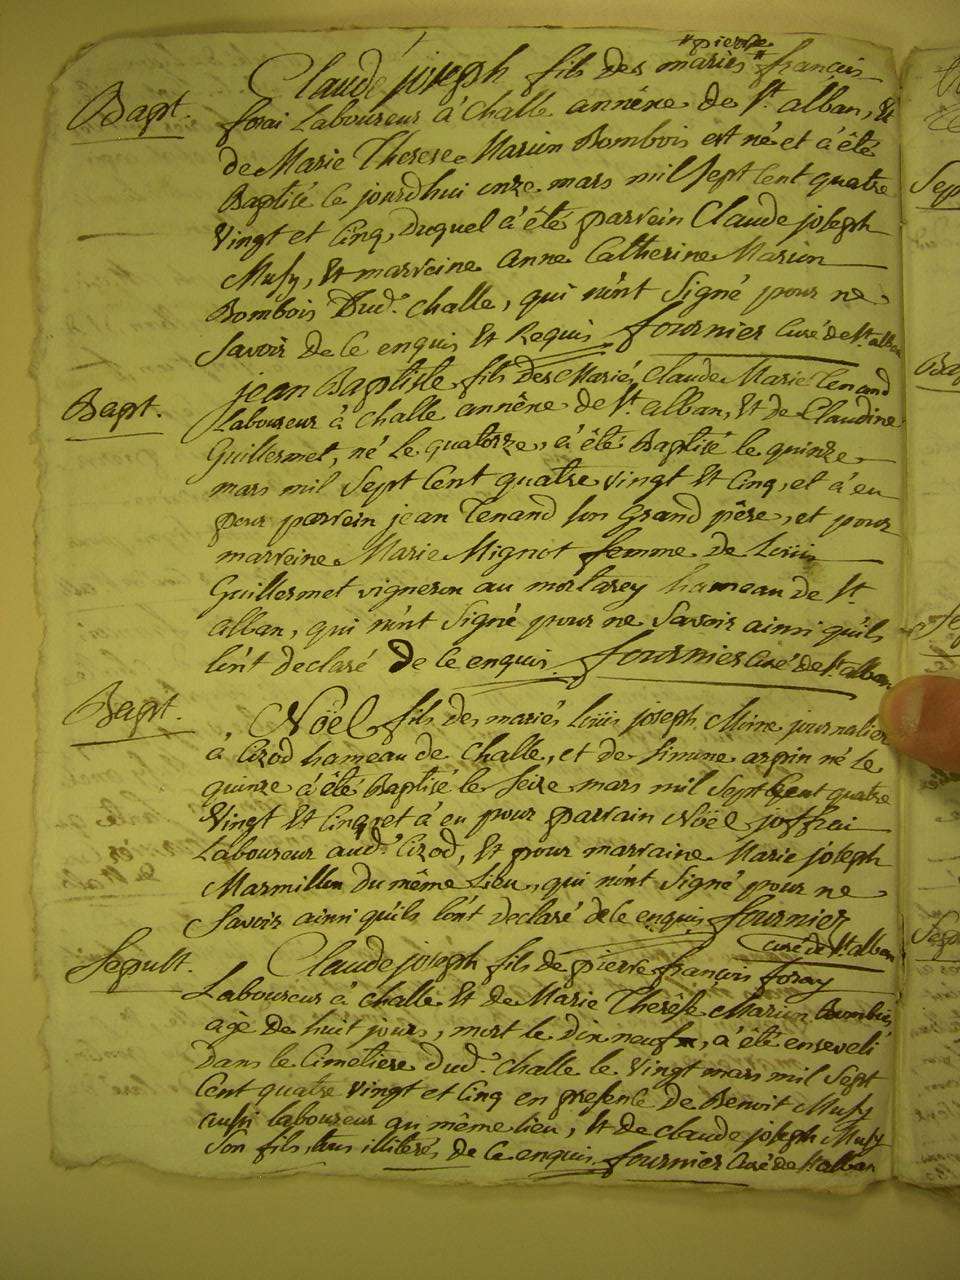 "pierre
Bapt.
Claude joseph fils des mariés " françois
forai Laboureur à Challe annéxe de St. alban, Et
de Marie Therese Marion Bombois est né et à été
Baptisé le jourdhui onze mars mil sept cent quatre
vingt et cinq, Duquel à été parrein Claude joseph
Mussy, Et marreine anne Catherine Marion
Bombois Dud. Challe, qui n'ont signé pour ne
savoir de ce enquis Et Requis fournier curé de St. alban
Bapt.
jean Baptiste fils des Mariés Claude Marie Tenand
Laboureur à challe annéxe de St. alban, Et de Claudine
Guillermet, né le quatorze, à été Baptisé le quinze
mars mil sept cent quatre vingt Et cinq, et à eu
pour parrein jean Tenand son Grand pére, et pour
marreine Marie Mignot femme de Loüis
Guillermet vigneron au mortarey hameau de St.
alban, qui n'ont signé pour ne savoir ainsi qu'ils
l'ont declaré De ce enquis fournier curé de St. alban
Bapt.
Noël fils des mariés Loüis joseph Moine journalier
à Cizod hameau de Challe, et de simone arpin né le
quinze à été Baptisé le seize mars mil sept Cent quatre
vingt Et cinq et à eu pour parrain Noël joffrai
Laboureur aud. Cizod, Et pour marraine Marie joseph
Marmillon Du même Lieu, qui n'ont signé pour ne
savoir ainsi qu'ils l'ont declaré de ce enquis fournier
curé de St. alban
Sepult.
Claude joseph fils de pierre françois foray
Laboureur à challe Et de Marie Thérêse Marion bombois
agé de huit jours, mort le dix neuf, à été enseveli
Dans le Cimetiere dud. Challe le vingt mars mil sept
Cent quatre vingt et cinq en presence de Benoit Mussy
aussi laboureur au même lieu, Et de claude joseph Mussy
son fils, tous illiterés de ce enquis fournier curé de St alban